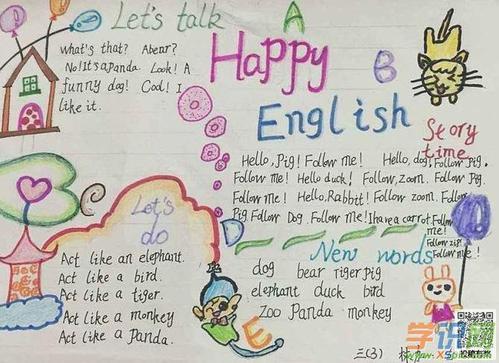 Let's talk
what's that? Abear?
No! It's a panda. Look! A
funny dog! Cool! I
like it.
A
Happy
B
English
Story
time
Hello, Pig! Follow me! Hello, dog, Follow Pig.
Follow me! Hello duck! Follow, zoom. Follow Pig.
Follow me! Hello, Rabbit! Follow zoom. Follow
Pig. Follow Dog. Follow me! I have a carrot. Follow
me!
Follow zip!
Follow me!
Let's
do
D
Act like an elephant.
Act like a bird.
Act like a tiger.
Act like a monkey
Act like a Panda.
New words
dog bear tiger pig
elephant duck bird
zoo Panda monkey
E
三(3)
学识网
投稿有奖